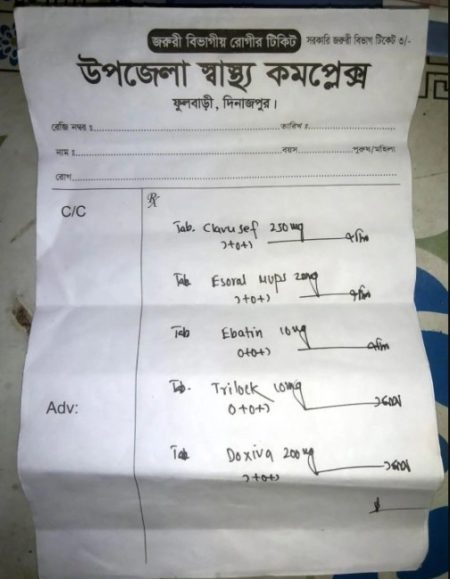 জরুরী বিভাগীয় রোগীর টিকিট সরকারি জরুরী বিভাগ টিকেট ৩/-
উপজেলা স্বাস্থ্য কমপ্লেক্স
ফুলবাড়ী, দিনাজপুর।
রেজি নম্বর ঃ তারিখ ঃ
নাম ঃ বয়স পুরুষ/মহিলা
রোগ
C/C
℞
Tab. Clavusef 250 mg
১+০+১
Tab. Esoral Mups 20mg
১+০+১
Tab Ebatin 10mg
০+০+১
Tab. Trilock 10mg
Adv:
০+০+১
Tab Doxiva 200mg
১+০+১